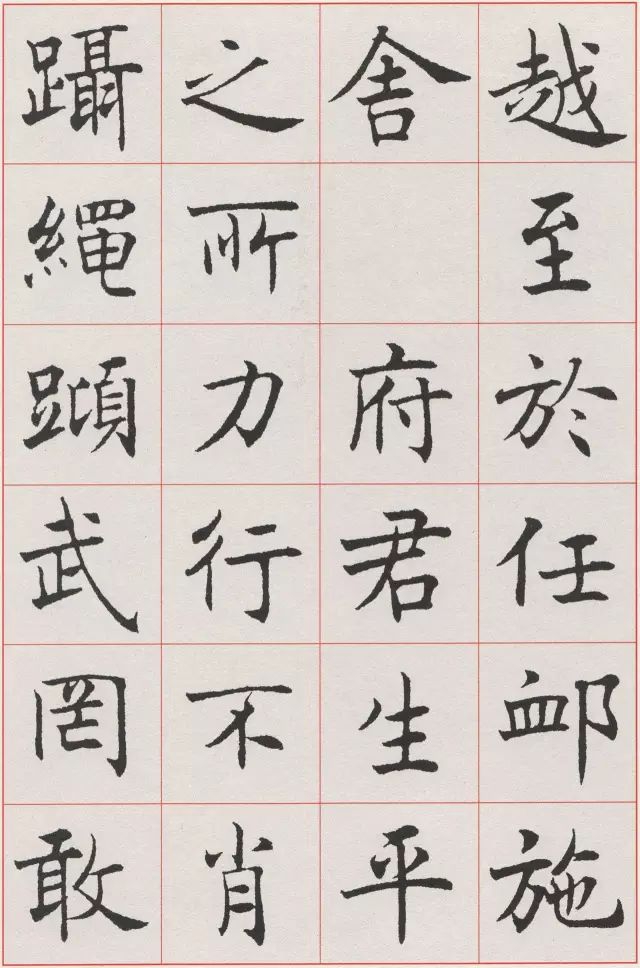 越至於任卹施
舍　府君生平
之所力行不肖
躡繩蹞武罔敢